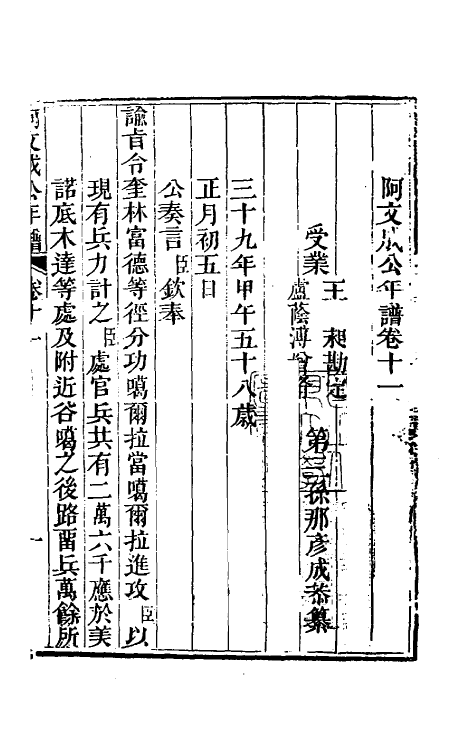 阿文成公年譜卷十一
受業
王昶勘定
盧蔭溥增修
第三孫那彥成恭纂
三十九年甲午五十八歲
正月初五日
公奏言臣欽奉
諭旨令奎林富德等徑分功噶爾拉當噶爾拉進攻臣以
現有兵力計之臣處官兵共有二萬六千應於美
諾底木達等處及附近谷噶之後路畱兵萬餘所
阿文成公年譜
卷十一
一